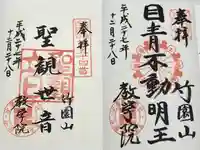 奉拝
平成二十七年
十二月二十八日
聖観世音
竹園山
教学院
奉拝
平成二十七年
十二月二十八日
目青不動明王
竹園山
教学院